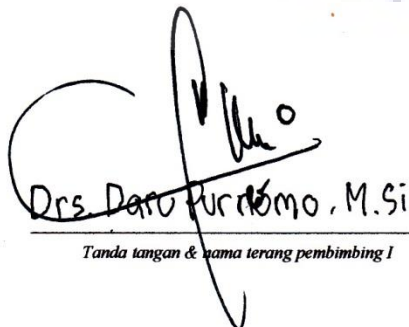 Drs. Daru Purnomo, M.Si
Tanda tangan & nama terang pembimbing I